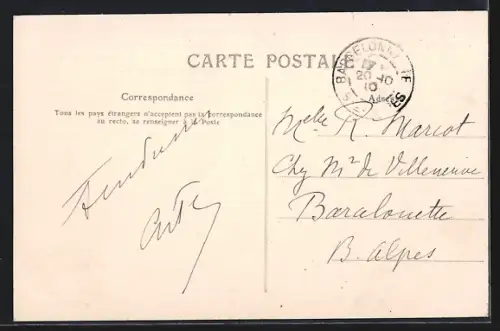 CARTE POSTALE
Correspondance
Tous les pays étrangers n'acceptent pas la correspondance
au recto, se renseigner à la Poste
BARCELONNETTE
17
20 -10
10
Adresse
Melle R. Marcot
Chez Mr de Villeneuve
Barcelonette
B. Alpes